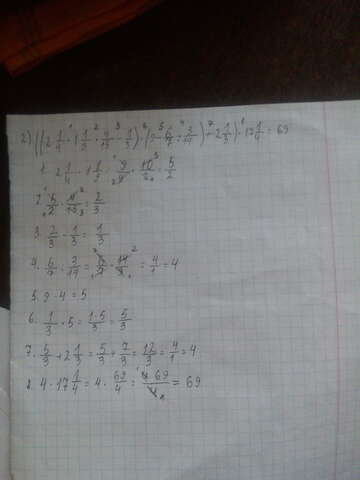 2) ((2 1/4 · 1 1/9 · 4/15 - 1/3) · (9 - 6/7 : 3/14) + 2 1/3) · 17 1/4 = 69
1. 2 1/4 · 1 1/9 = 9/4 · 10/9 = 5/2
2. 5/2 · 4/15 = 2/3
3. 2/3 - 1/3 = 1/3
4. 6/7 : 3/14 = 6/7 · 14/3 = 4/1 = 4
5. 9 - 4 = 5
6. 1/3 · 5 = 1·5/3 = 5/3
7. 5/3 + 2 1/3 = 5/3 + 7/3 = 12/3 = 4/1 = 4
8. 4 · 17 1/4 = 4 · 69/4 = 4·69/4 = 69